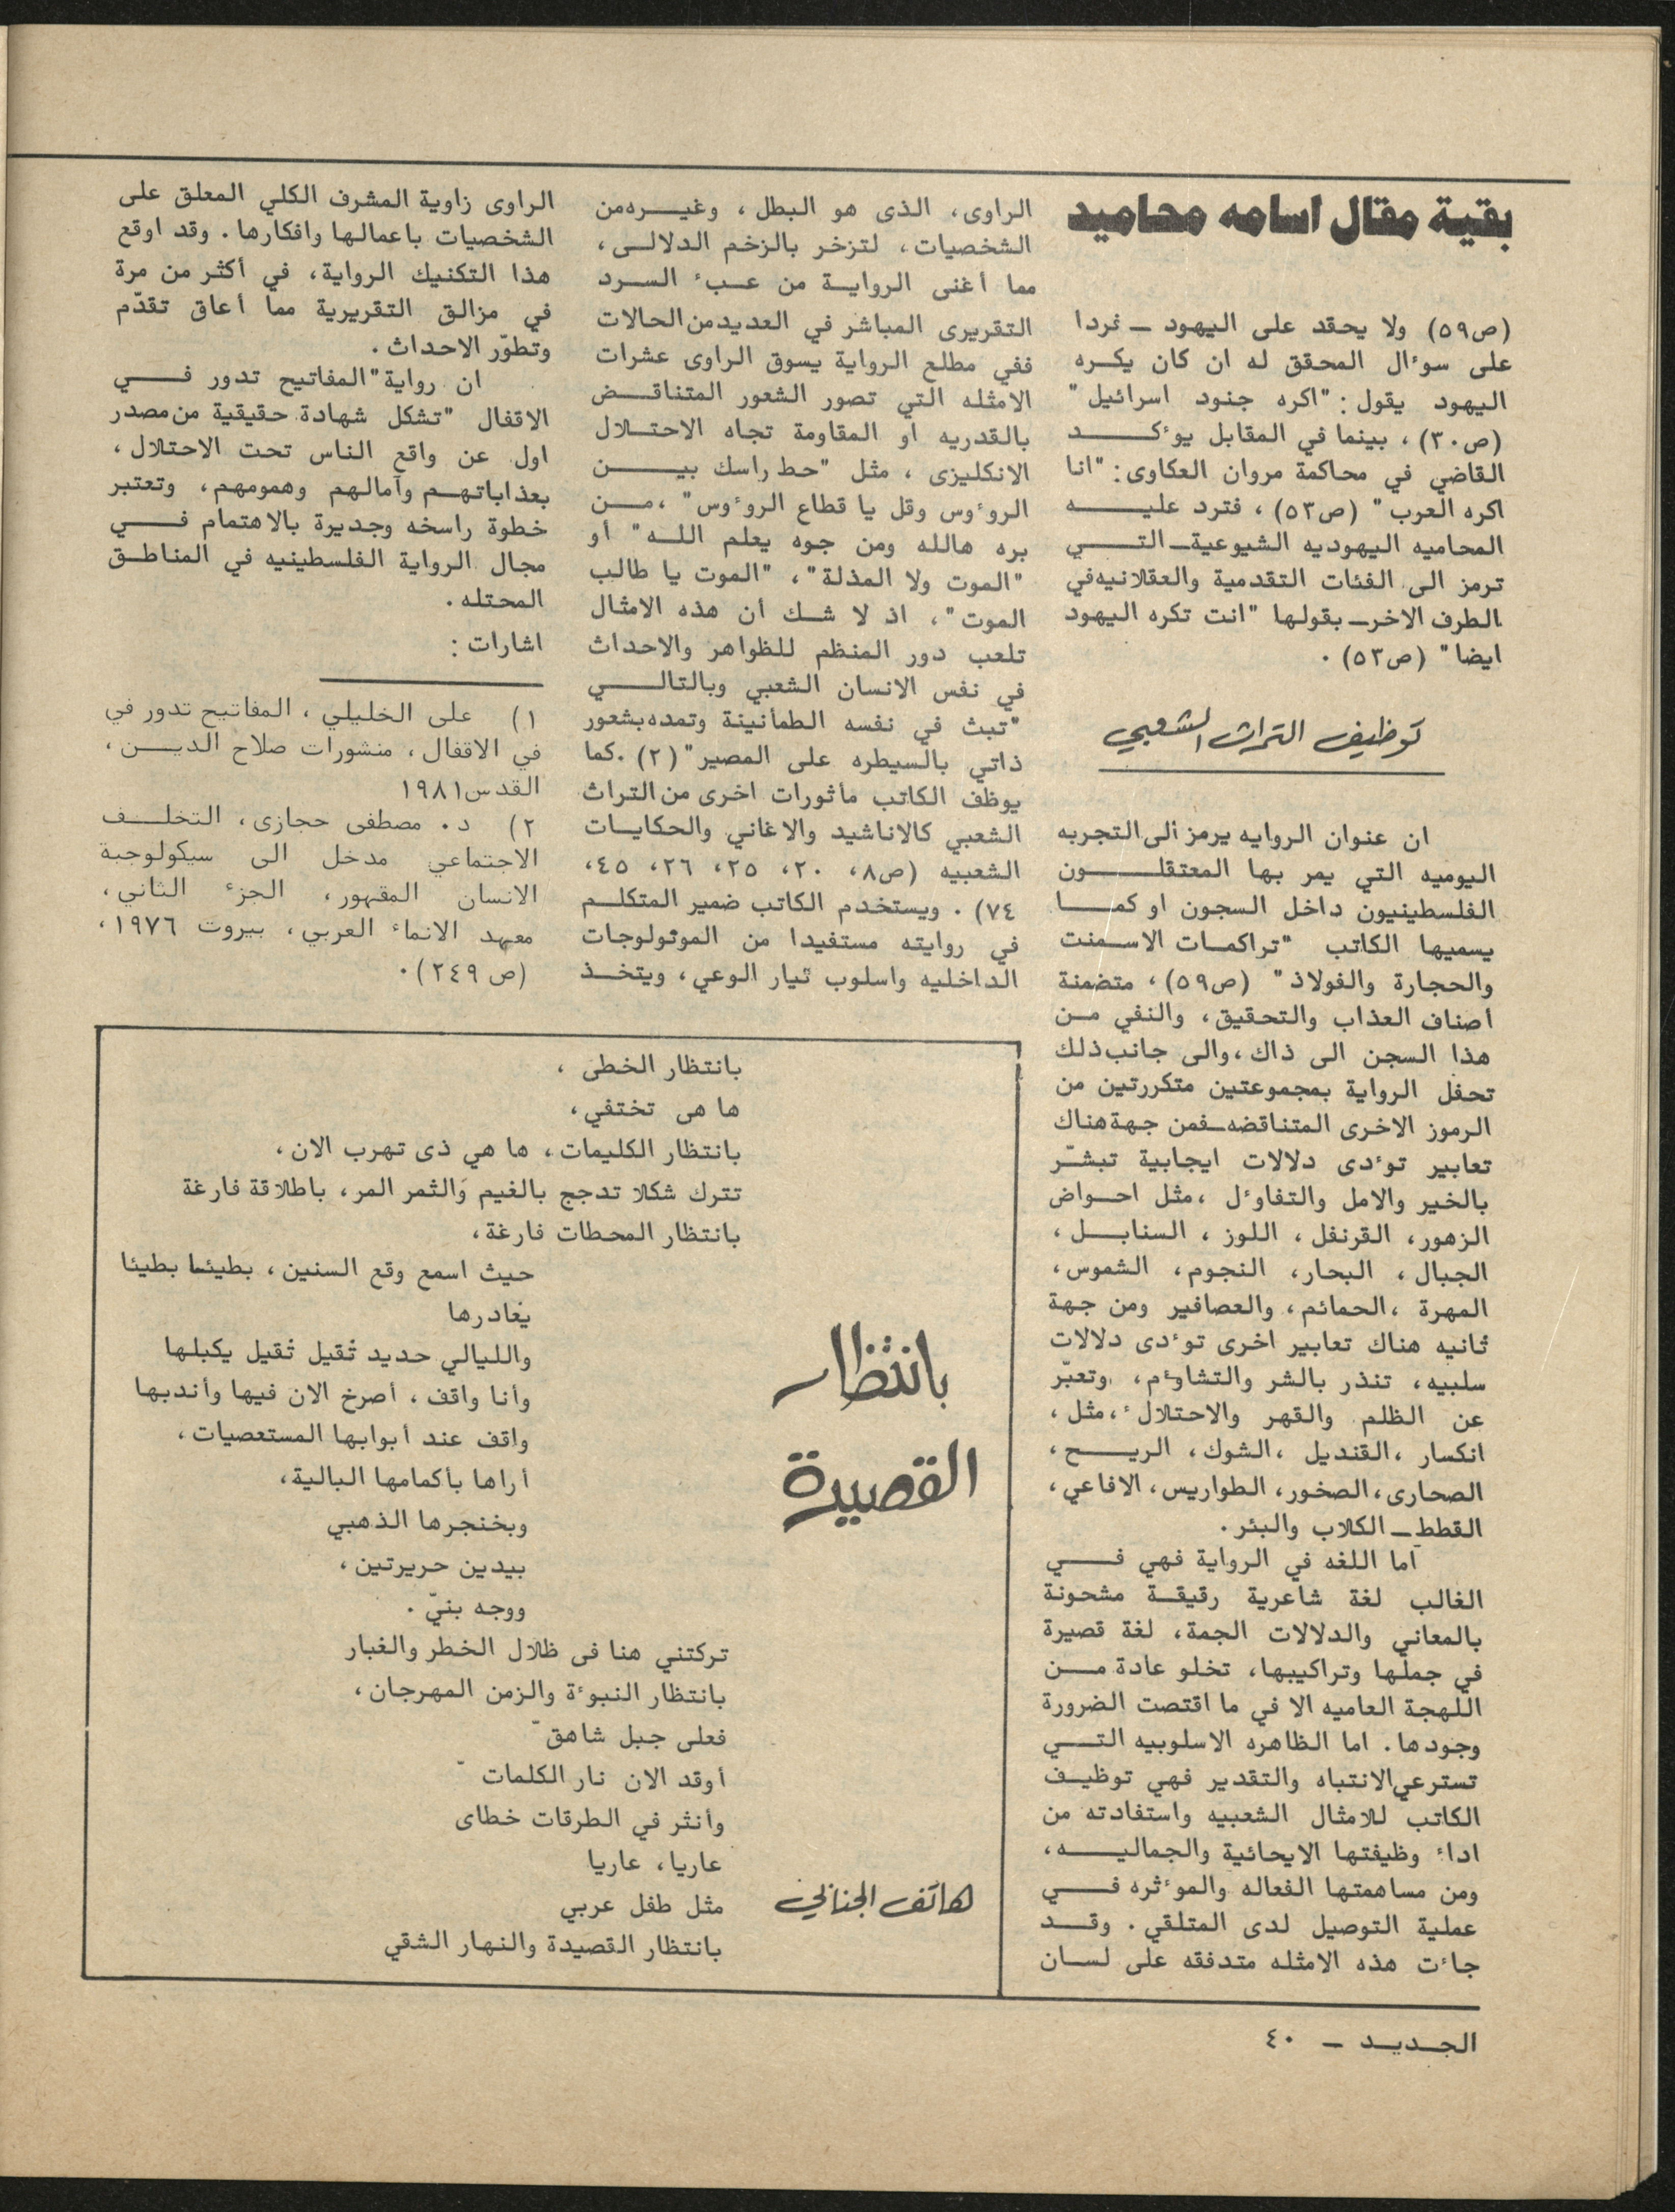 بقية مقال اسامه محاميد
(ص٥٩) ولا يحقد على اليهود ـ فردا
على سوءال المحقق له ان كان يكره
اليهود يقول : "اكره جنود اسرائيل"
(ص٣٠) ، بينما في المقابل يوءكد
القاضي في محاكمة مروان العكاوى: "انا
اكره العرب" (ص٥٣) ، فترد عليه
المحاميه اليهوديه الشيوعية ـ التي
ترمز الى الفئات التقدمية والعقلانيه في
الطرف الاخر ـ بقولها "انت تكره اليهود
ايضا" (ص٥٣) .
توظيف التراث الشعبي
ان عنوان الروايه يرمز الى التجربه
اليوميه التي يمر بها المعتقلون
الفلسطينيون داخل السجون او كما
يسميها الكاتب "تراكمات الاسمنت
والحجارة والفولاذ" (ص٥٩) ، متضمنة
اصناف العذاب والتحقيق، والنفي من
هذا السجن الى ذاك ، والى جانب ذلك
تحفل الرواية بمجموعتين متكررتين من
الرموز الاخرى المتناقضه ـ فمن جهة هناك
تعابير توءدى دلالات ايجابية تبشّر
بالخير والامل والتفاوءل ، مثل احواض
الزهور، القرنفل ، اللوز ، السنابل ،
الجبال ، البحار، النجوم، الشموس،
المهرة ، الحمائم، والعصافير ومن جهة
ثانيه هناك تعابير اخرى توءدى دلالات
سلبيه، تنذر بالشر والتشاوءم، وتعبّر
عن الظلم والقهر والاحتلال ء، مثل ،
انكسار ، القنديل ، الشوك، الريح ،
الصحارى، الصخور، الطواريس، الافاعي،
القطط ـ الكلاب والبئر.
اما اللغه في الرواية فهي في
الغالب لغة شاعرية رقيقة مشحونة
بالمعاني والدلالات الجمة، لغة قصيرة
في جملها وتراكيبها، تخلو عادة من
اللهجة العاميه الا في ما اقتصت الضرورة
وجودها. اما الظاهره الاسلوبيه التي
تسترعي الانتباه والتقدير فهي توظيف
الكاتب للامثال الشعبيه واستفادته من
اداء وظيفتها الايحائية والجماليه ،
ومن مساهمتها الفعاله والموءثره في
عملية التوصيل لدى المتلقي . وقد
جاءت هذه الامثله متدفقه على لسان
الراوى، الذى هو البطل ، وغيره من
الشخصيات، لتزخر بالزخم الدلالى،
مما أغنى الرواية من عبء السرد
التقريرى المباشر في العديد من الحالات
ففي مطلع الرواية يسوق الراوى عشرات
الامثله التي تصور الشعور المتناقض
بالقدريه او المقاومة تجاه الاحتلال
الانكليزى ، مثل "حط راسك بين
الروءوس وقل يا قطاع الروءوس" ، من
بره هالله ومن جوه يعلم الله" أو
"الموت ولا المذلة" ، "الموت يا طالب
الموت" ، اذ لا شك أن هذه الامثال
تلعب دور المنظم للظواهر والاحداث
في نفس الانسان الشعبي وبالتالي
"تبث في نفسه الطمأنينة وتمده بشعور
ذاتي بالسيطره على المصير" (٢) . كما
يوظف الكاتب مأثورات اخرى من التراث
الشعبي كالاناشيد والاغاني والحكايات
الشعبيه (ص٨، ٢٠، ٢٥، ٢٦، ٤٥،
٧٤) . ويستخدم الكاتب ضمير المتكلم
في روايته مستفيدا من المونولوجات
الداخليه واسلوب تيار الوعي، ويتخذ
الراوى زاوية المشرف الكلي المعلق على
الشخصيات باعمالها وافكارها. وقد اوقع
هذا التكنيك الرواية، في أكثر من مرة
في مزالق التقريرية مما أعاق تقدّم
وتطوّر الاحداث .
ان رواية "المفاتيح تدور في
الاقفال "تشكل شهادة حقيقية من مصدر
اول عن واقع الناس تحت الاحتلال ،
بعذاباتهم وآمالهم وهمومهم، وتعتبر
خطوة راسخه وجديرة بالاهتمام في
مجال الرواية الفلسطينيه في المناطق
المحتله .
اشارات :
١) على الخليلي ، المفاتيح تدور في
في الاقفال ، منشورات صلاح الدين ،
القدس ١٩٨١
٢) د. مصطفى حجازى، التخلف
الاجتماعي مدخل الى سيكولوجية
الانسان المقهور، الجزء الثاني ،
معهد الانماء العربي ، بيروت ١٩٧٦ ،
(ص ٢٤٩) .
بانتظار
القصيدة
هاتف الجنابي
بانتظار الخطى ،
ها هى تختفي ،
بانتظار الكليمات ، ها هي ذى تهرب الان ،
تترك شكلا تدجج بالغيم وَالثمر المر، باطلاقة فارغة
بانتظار المحطات فارغة ،
حيث اسمع وقع السنين ، بطيئا بطيئا
يغادرها
والليالي حديد ثقيل ثقيل يكبلها
وأنا واقف ، أصرخ الان فيها وأندبها
واقف عند أبوابها المستعصيات ،
أراها بأكمامها البالية ،
وبخنجرها الذهبي
بيدين حريرتين ،
ووجه بنيّ .
تركتني هنا فى ظلال الخطر والغبار
بانتظار النبوءة والزمن المهرجان ،
فعلى جبل شاهق
أوقد الان نار الكلمات
وأنثر في الطرقات خطاى
عاريا، عاريا
مثل طفل عربي
بانتظار القصيدة والنهار الشقي
الجديد ـ ٤٠